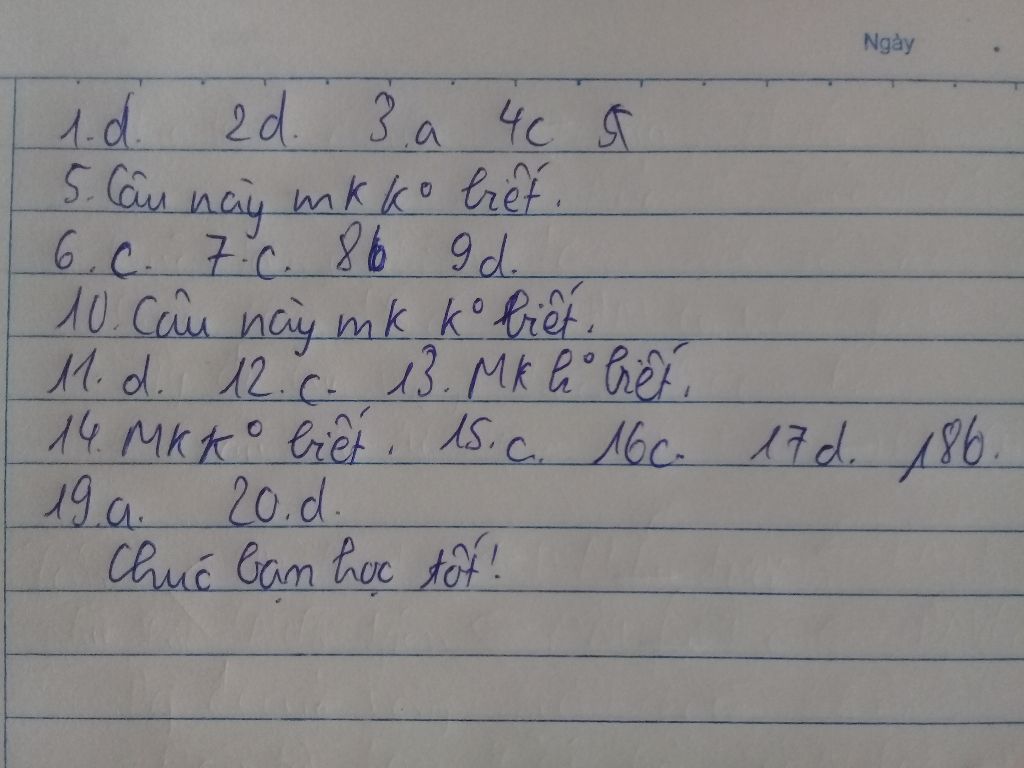 Ngày
1.d. 2d. 3.a 4c
5. Câu này mk k° biết.
6.c. 7.c. 8b 9d.
10. Câu này mk k° biết.
11.d. 12.c. 13. Mk k° biết.
14. Mk k° biết. 15.c. 16c. 17d. 18b.
19.a. 20.d.
Chúc bạn học tốt!